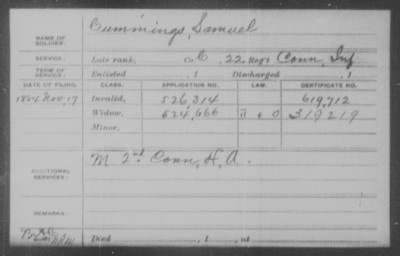 Cummings, Samuel
NAME OF SOLDIER:
SERVICE: Late rank, Co. C, 22 Reg't Conn. Inf
TERM OF SERVICE: Enlisted , 1 Discharged , 1
DATE OF FILING. CLASS. APPLICATION NO. LAW. CERTIFICATE NO.
Nov. 17 Invalid, 526,314 619,712
Widow, 524,666 319219
Minor,
ADDITIONAL SERVICES: M 2nd Conn. H. A.
REMARKS:
Died , 1 , at